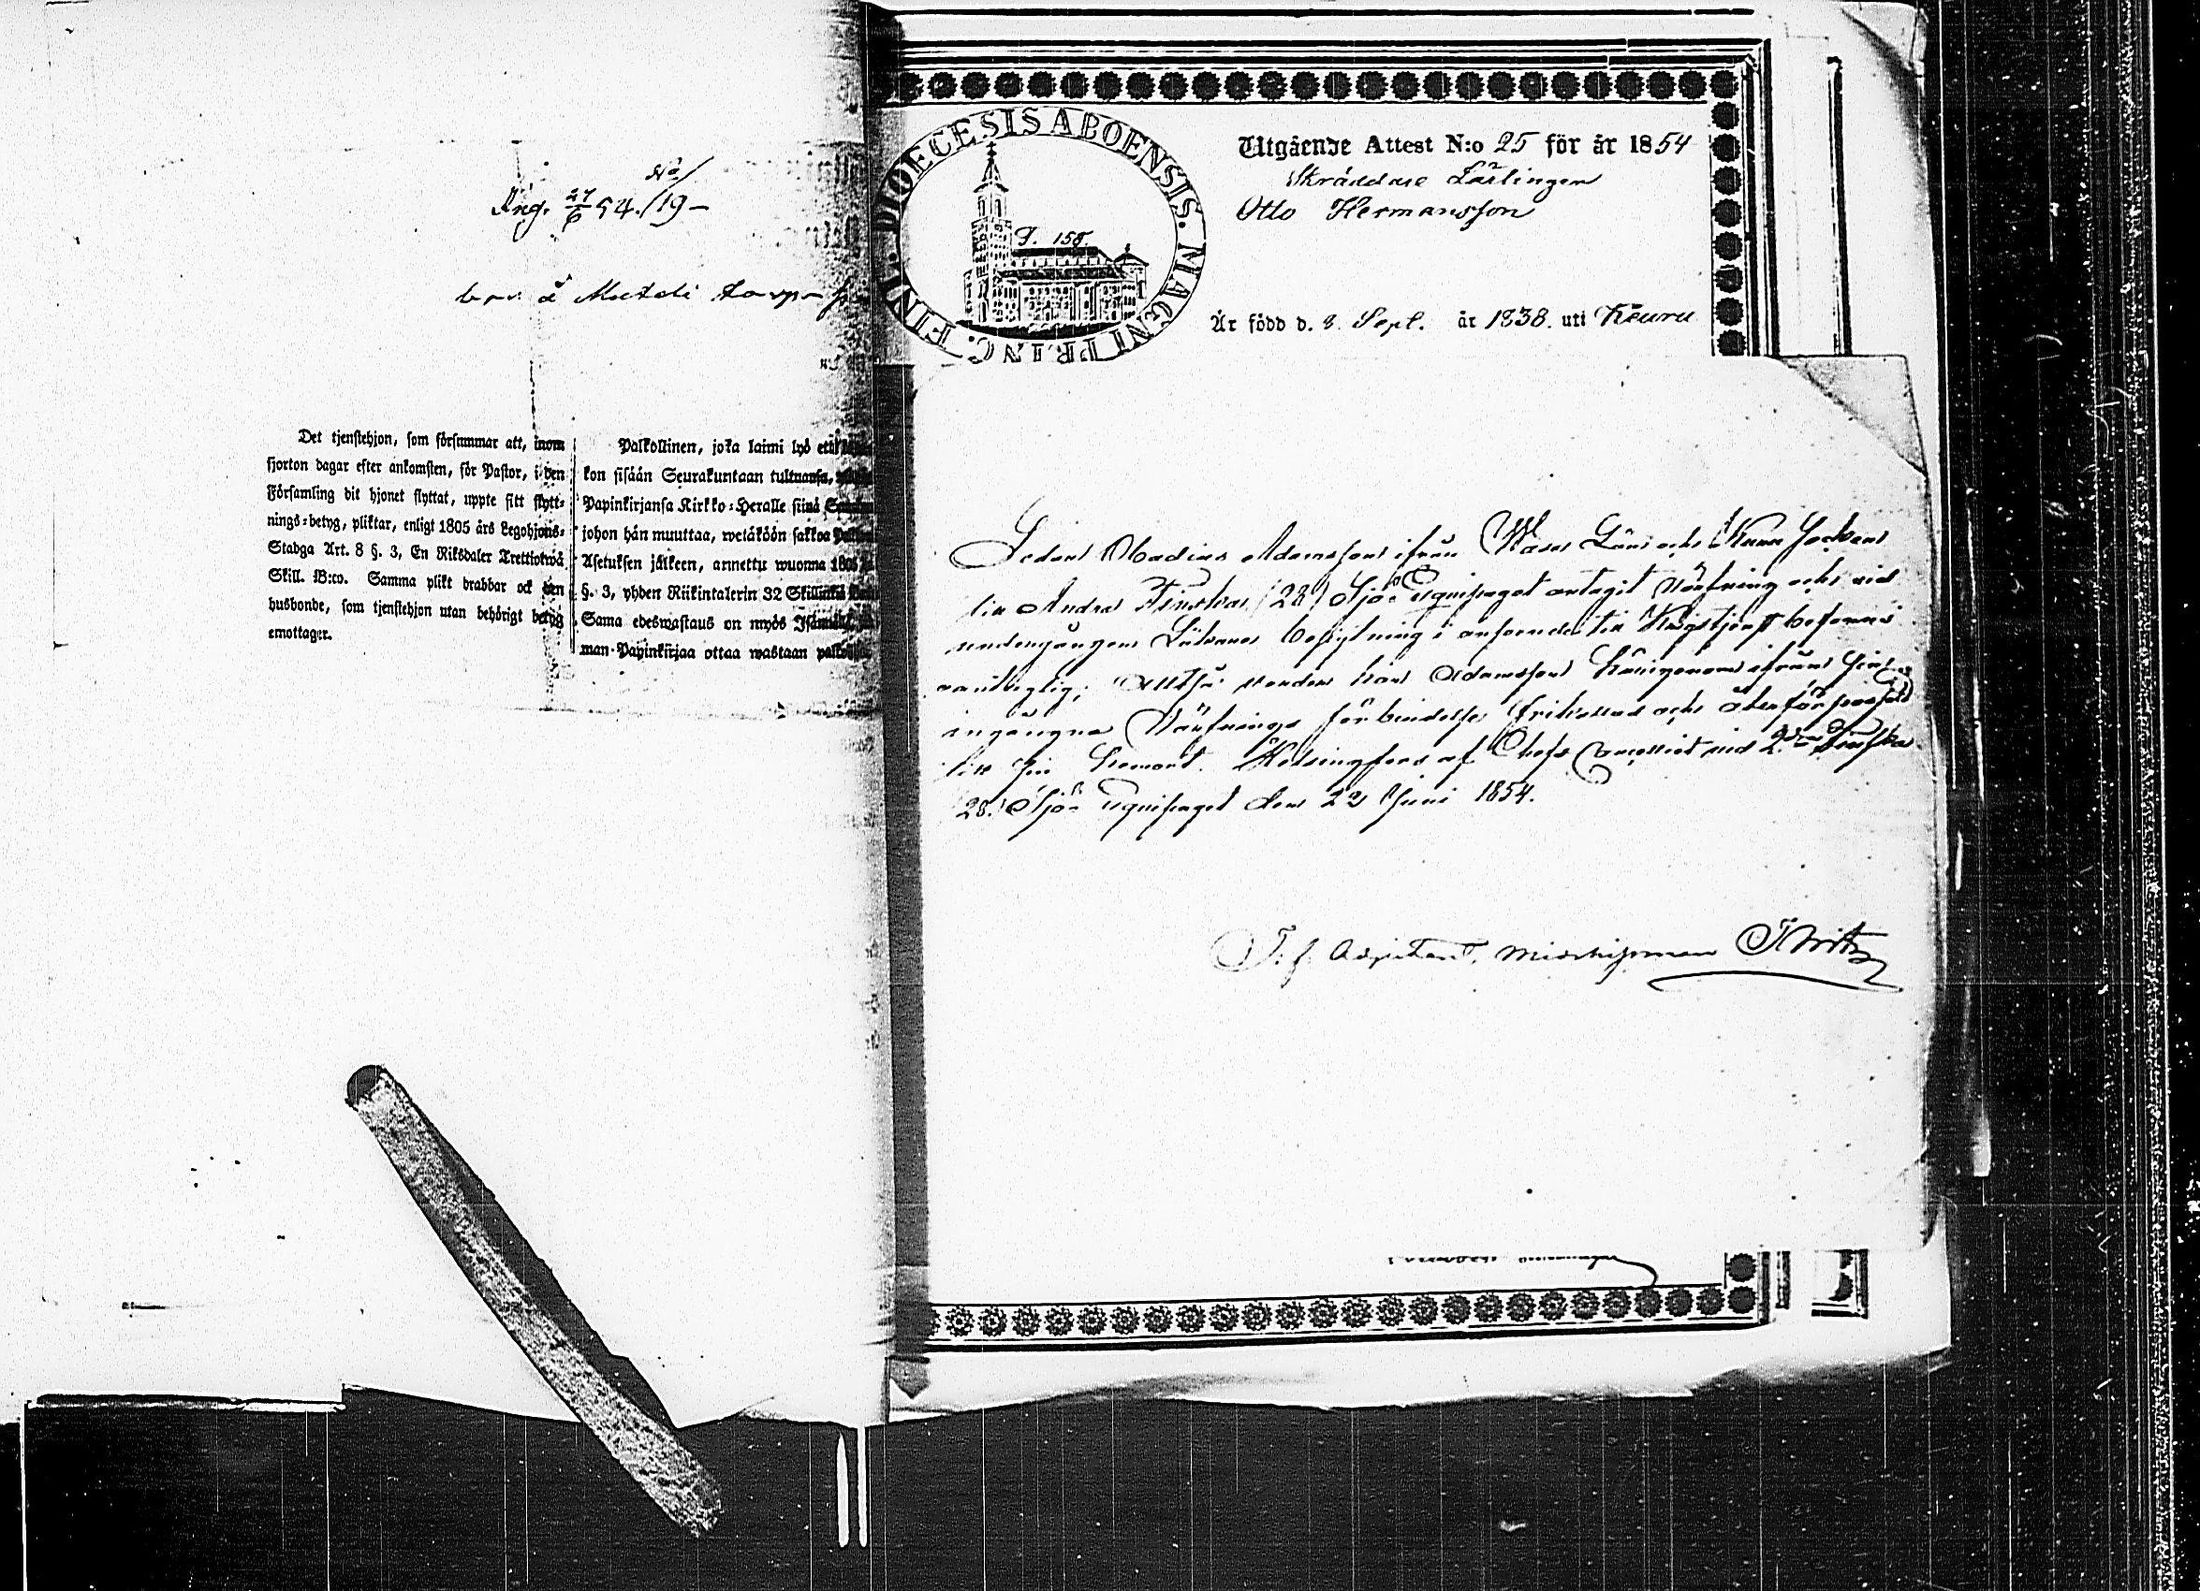 No
Ang. 27/6 54. /19-
Det tjenstehjon, som försummar att, inom
fjorton dagar efter ankomsten, för Pastor, i den
Församling dit hjonet flyttat, uppte sitt flytt=
nings=betyg, pliktar, enligt 1805 års Legohjons=
Stadga Art. 8 §. 3, En Riksdaler Trettiotwå
Skill. B:co. Samma plikt drabbar ock den
husbonde, som tjenstehjon utan behörigt betyg
emottager.
Palkollinen, joka laimi lyö että
kon sisään Seurakuntaan tultuansa,
Papinkirjansa Kirkko=Heralle siinä
johon hän muuttaa, wetäköön sakkoa
Asetuksen jälkeen, annettu wuonna 1805
§. 3, yhden Riikintalerin 32 Skillinkiä
Sama edeswastaus on myös Isännällä,
man Papinkirjaa ottaa wastaan
DIOECESIS ABOENSIS. MAGNI PRINC. FINL.
P. 158.
Utgående Attest N:o 25 för år 1854
Skräddare Lärlingen
Otto Hermansson
Är född d. 8. Sept. år 1838. uti Keuru
Sedan Obadias Adamsson ifrån Wasa Län och Socken
till Andra Finska (28) Sjö Equipaget antagit Värfning och vid
undergången Läkare besigtning i anseende till Krigstjenst befunnits
oantaglig; Alltså varder han Adamsson härigenom ifrån sin
ingångna Värfnings förbindelse frikallad och återförpassad
till sin hemort. Helsingfors af Chefs Canselliet vid 2dra Finska
28. Sjö Equipaget den 22 Juni 1854.
T. f. Adjutant, Midshipman